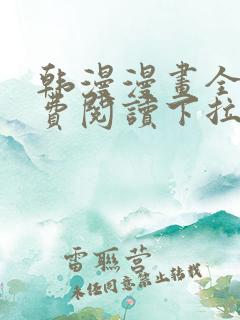 韩漫漫畫全
費閱讀下拉
雷聯营
未经同意禁止转载